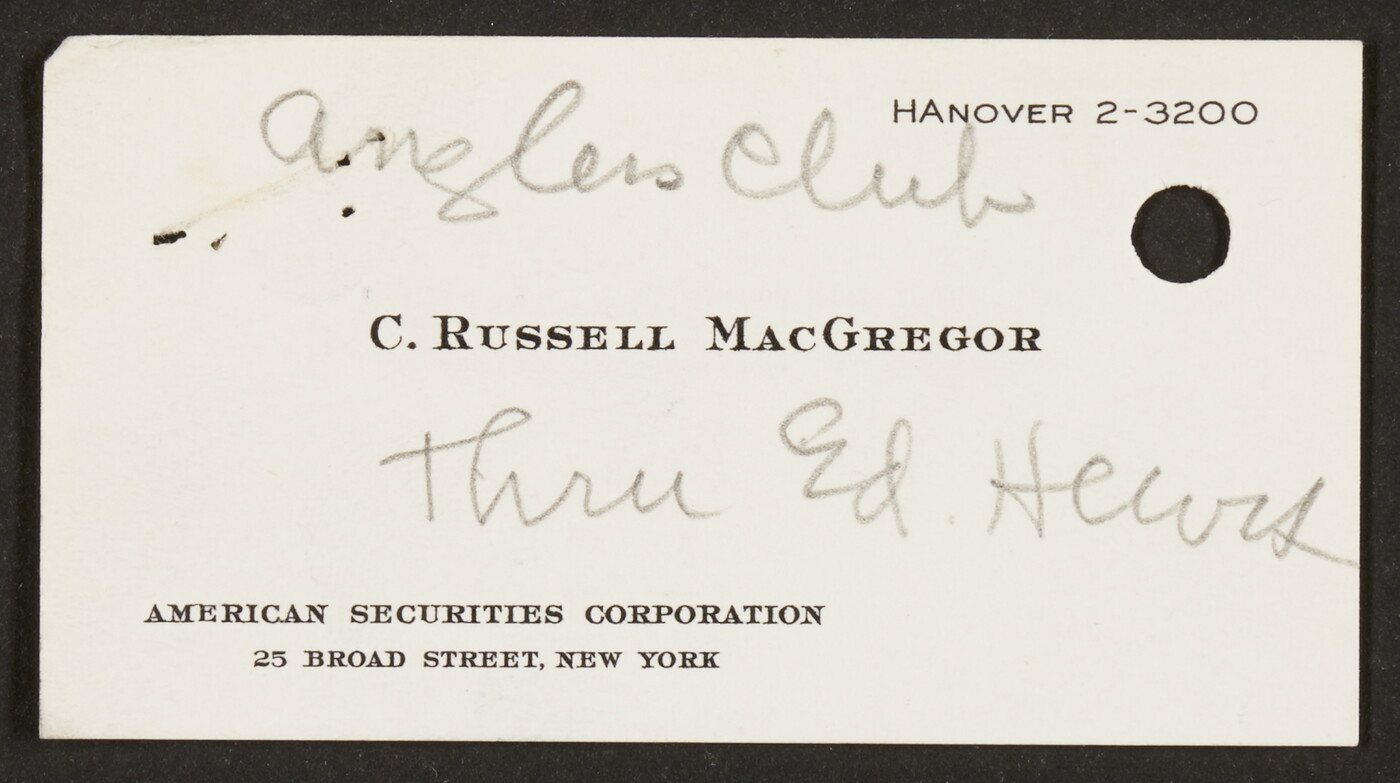 HANOVER 2-3200
Anglers Club
C. RUSSELL MACGREGOR
Thru Ed. Hewitt
AMERICAN SECURITIES CORPORATION
25 BROAD STREET, NEW YORK